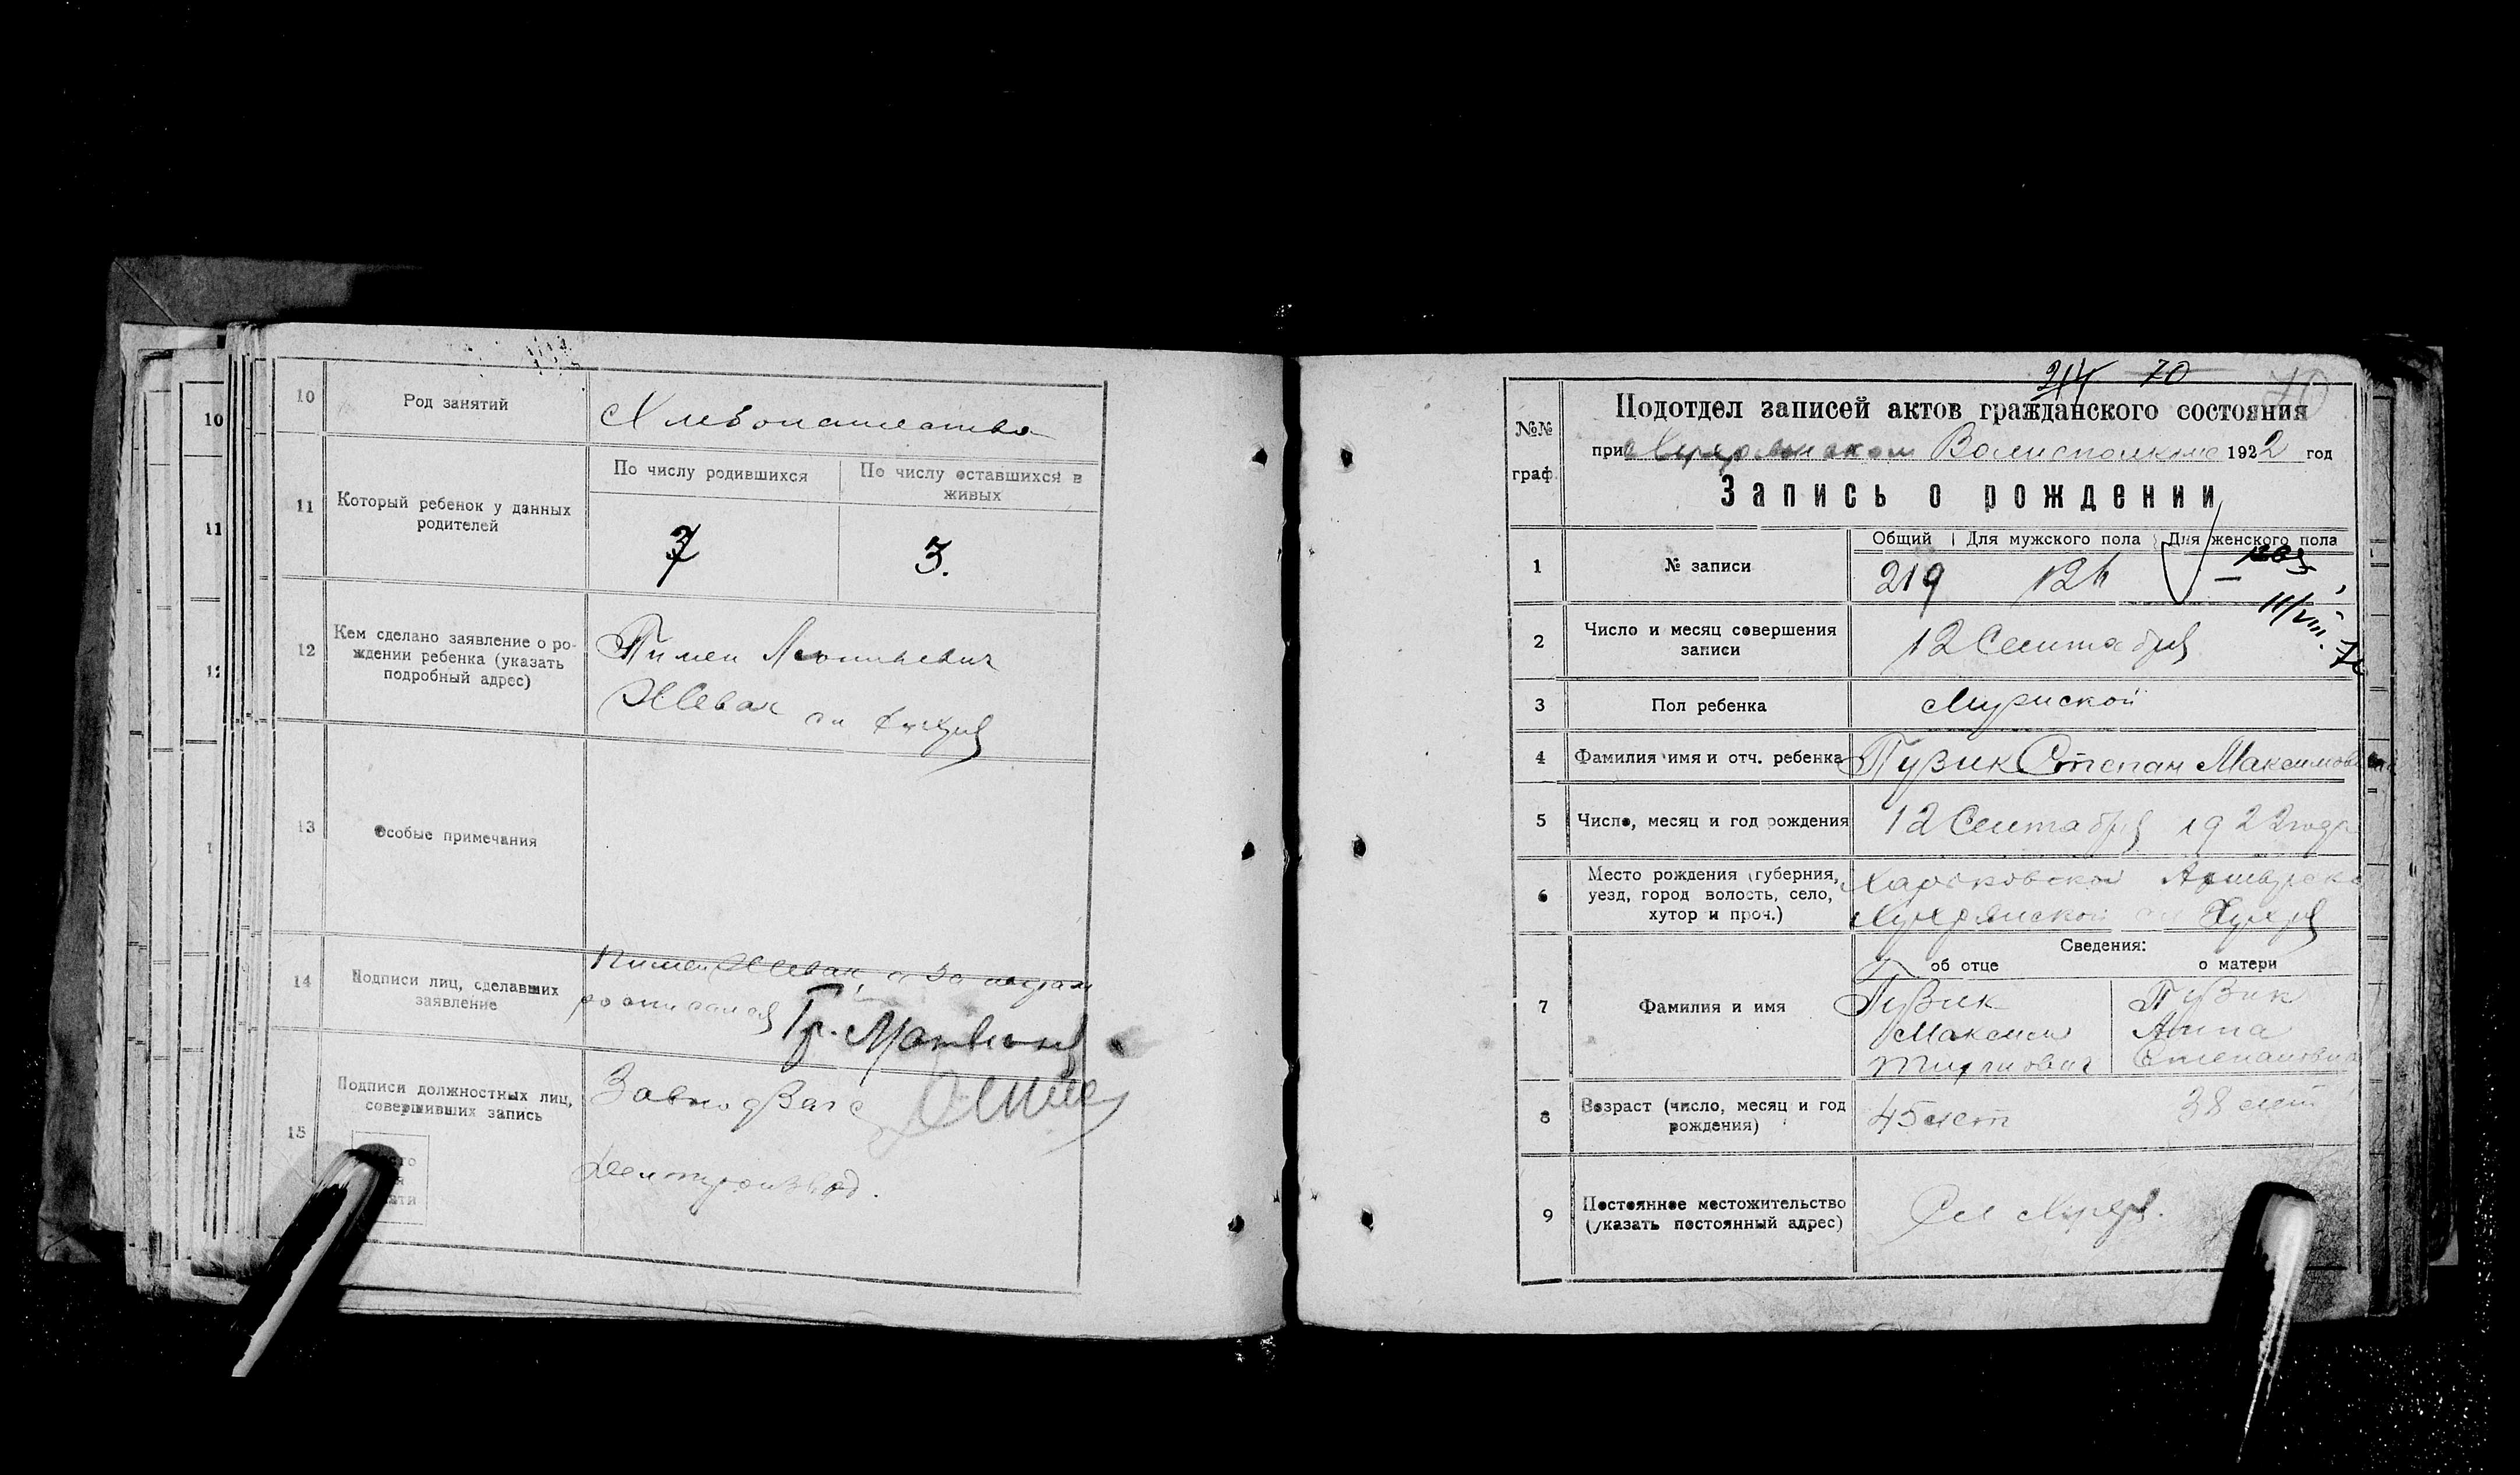 10
Род занятий
Хлебопашество
11
Который ребенок у данных
родителей
По числу родившихся
По числу оставшихся в
живых
7
3.
12
Кем сделано заявление о ро-
ждении ребенка (указать
подробный адрес)
Пимен
Жевак
13
Особые примечания
14
Подписи лиц, сделавших
заявление
Пимен Жевак, а за неграм
росписался Гр.
15
Подписи должностных лиц,
совершивших запись
Делопроизвод.
214 70
70
№№
граф.
Подотдел записей актов гражданского состояния
при Хухрянском Волисполкоме 1922 год
Запись о рождении
1
№ записи
Общий
Для мужского пола
Для женского пола
219
124
—
11/VIII
2
Число и месяц совершения
записи
12 Сентября
3
Пол ребенка
Мужской
4
Фамилия имя и отч. ребенка
Пузик Степан Максимович
5
Число, месяц и год рождения
12 Сентября 1922 года
6
Место рождения (губерния,
уезд, город волость, село,
хутор и проч.)
Харьковской Ахтырско
Хухрянской сл Хухря
Сведения:
об отце
о матери
7
Фамилия и имя
Пузик
Максим
Пузик
Анна
Степановна
8
Возраст (число, месяц и год
рождения)
45 лет
38 лет
9
Постоянное местожительство
(указать постоянный адрес)
Сл Хухря.